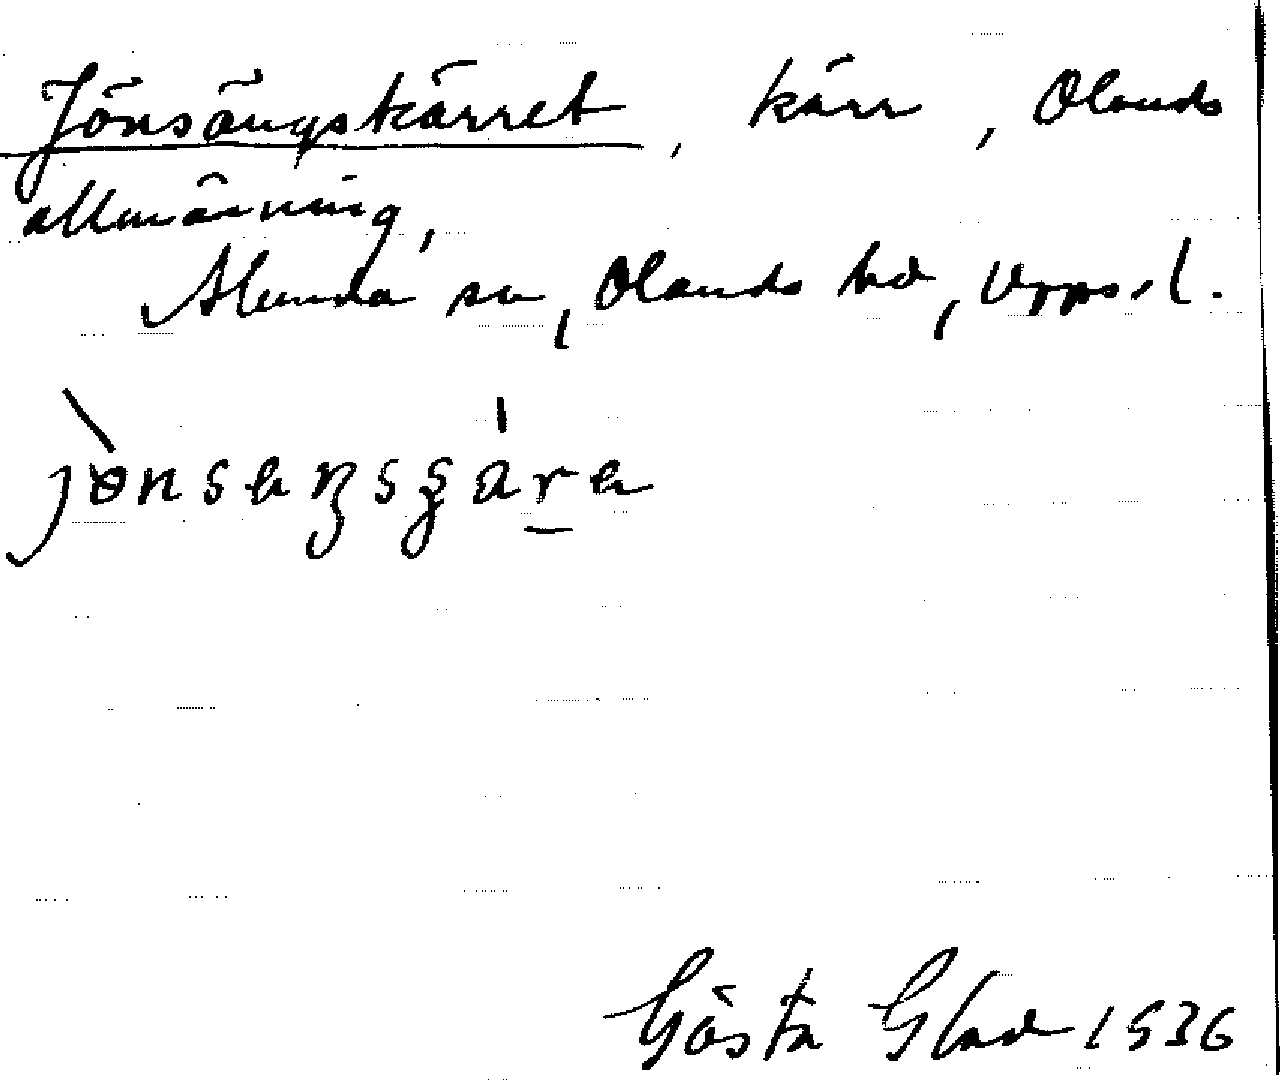 Jönsängskärret, kärr, Olands
allmänning,
Alunda sn, Olands hd, Upps. l.
Gösta Glad 1936